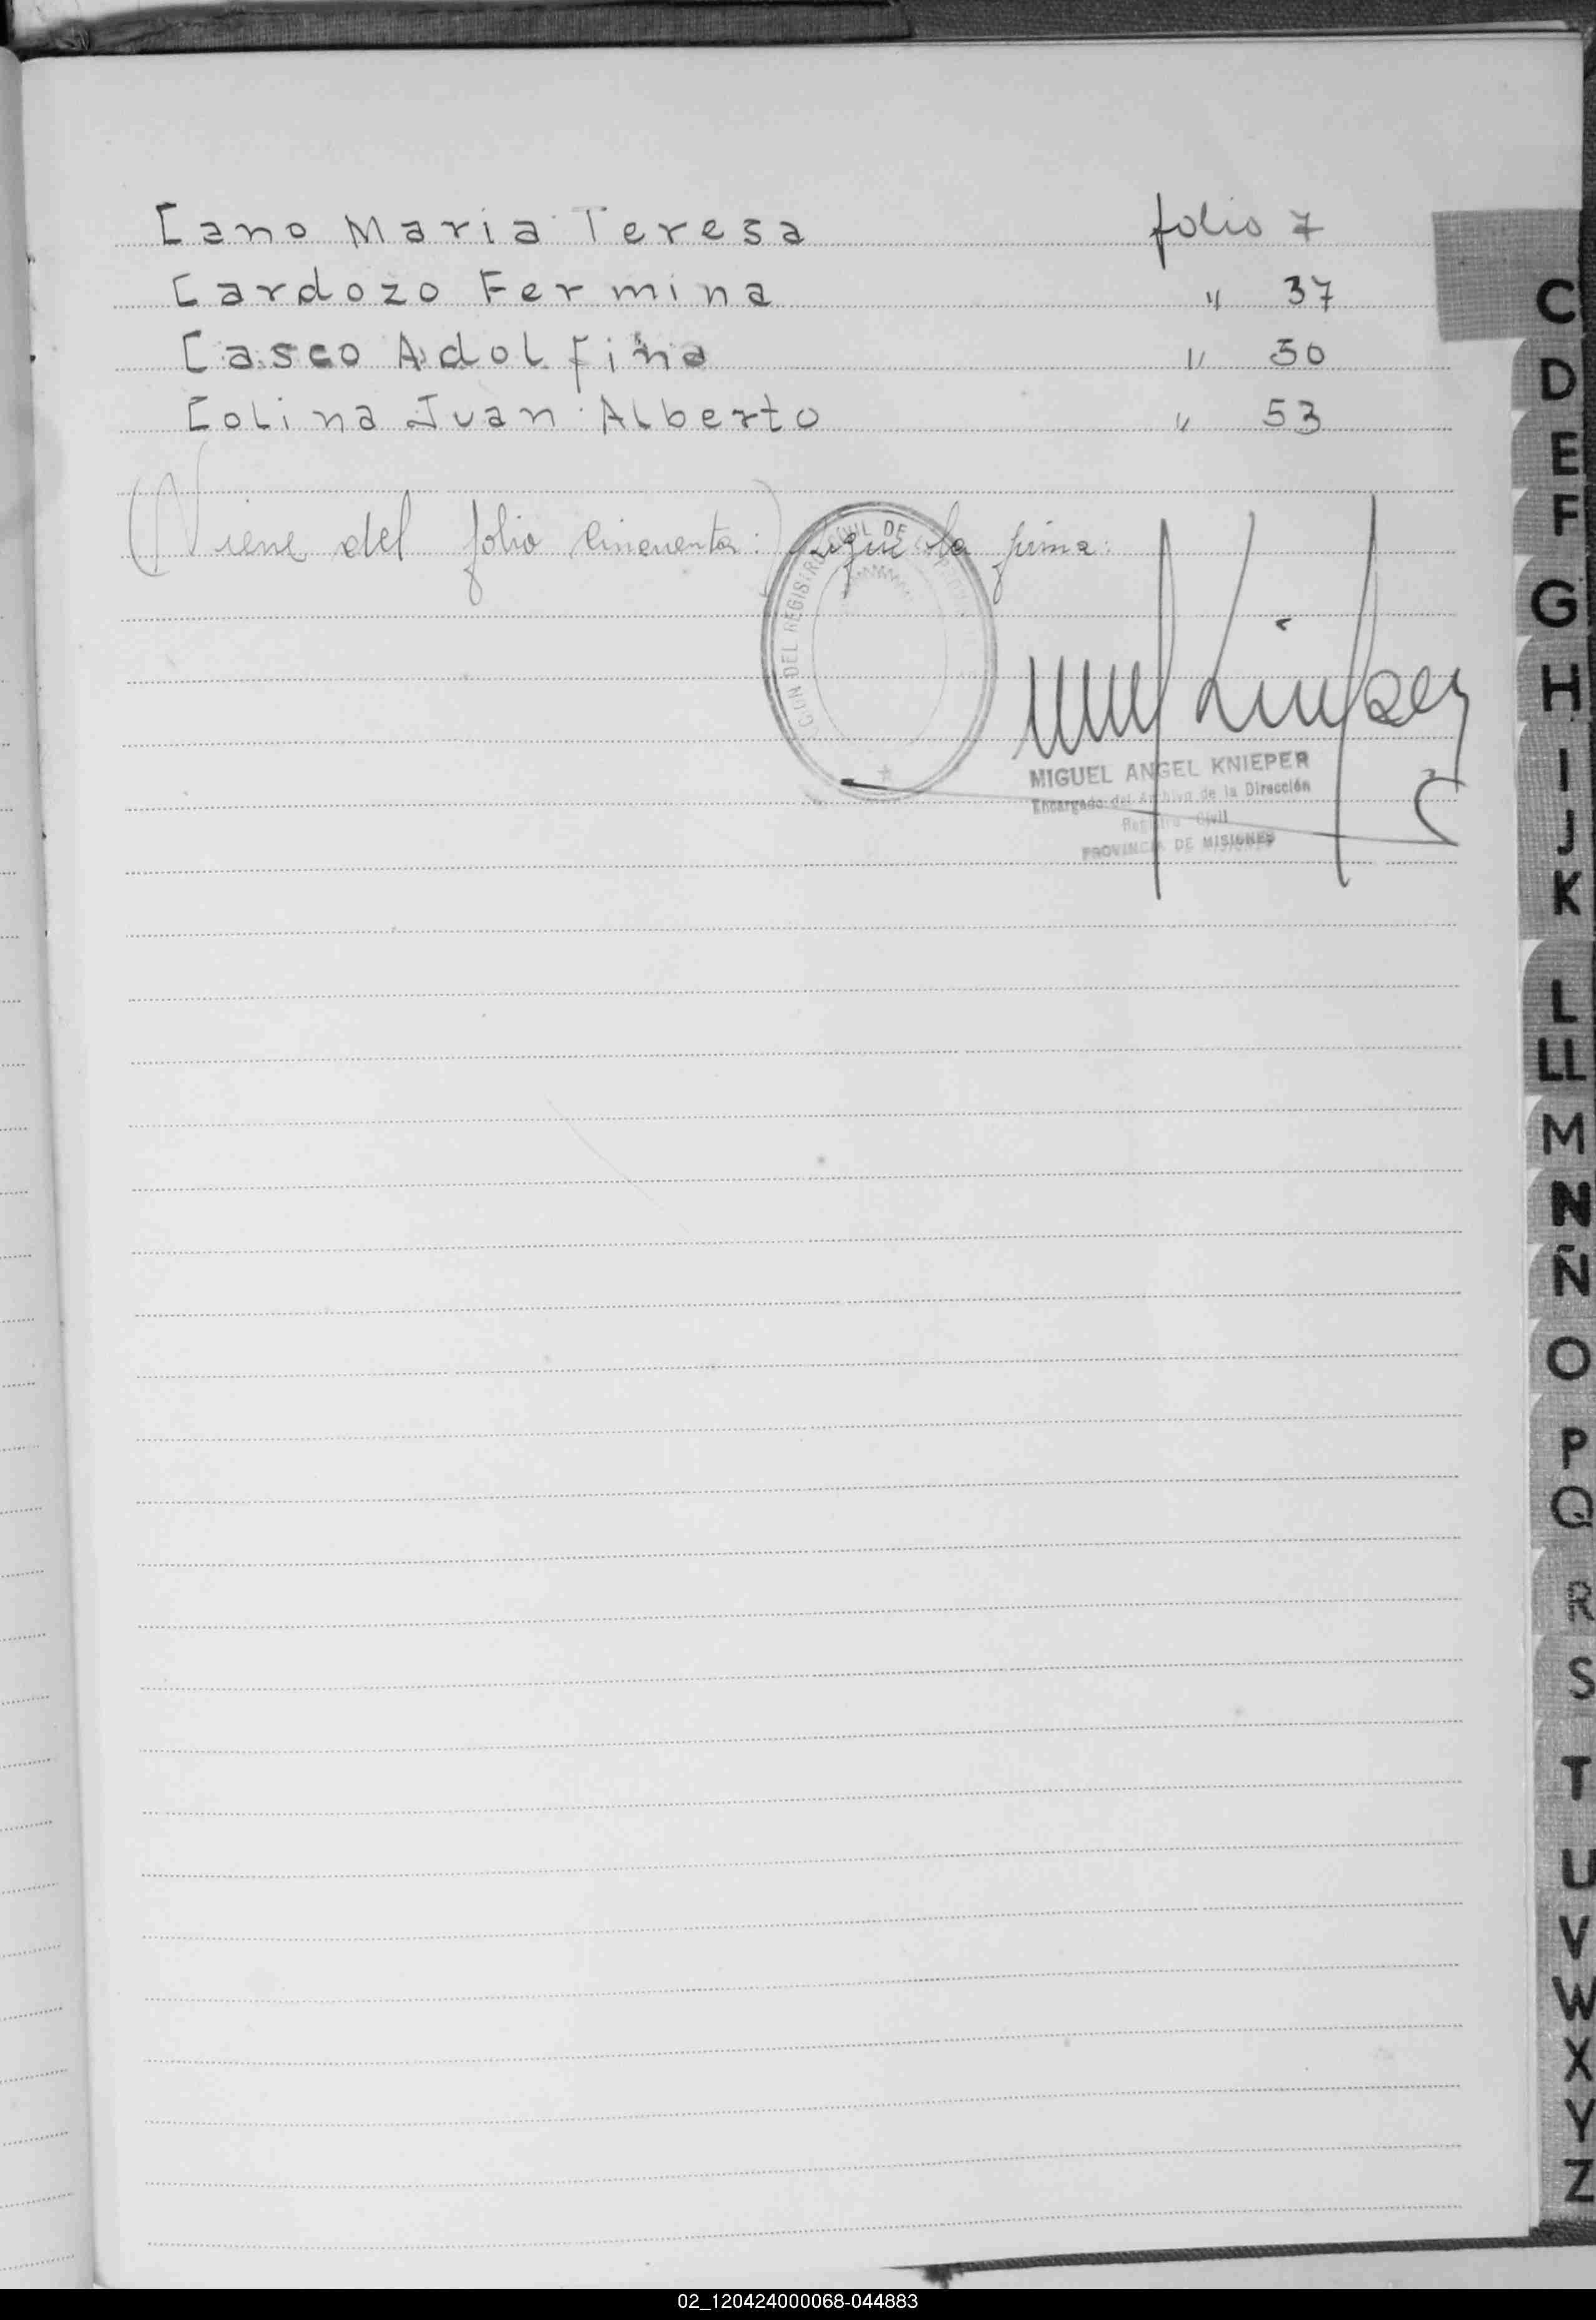 Cano Maria Teresa folio 7
Cardozo Fermina " 37
Casco Adolfina " 50
Colina Juan Alberto " 53
(Viene del folio cincuenta:) sigue la firma:
CION DEL REGISTRO CIVIL DE
MIGUEL ANGEL KNIEPER
Encargado del Archivo de la Dirección
Registro Civil
PROVINCIA DE MISIONES
C
D
E
F
G
H
I
J
K
L
LL
M
N
Ñ
O
P
Q
R
S
T
U
V
W
X
Y
Z
02_120424000068-044883